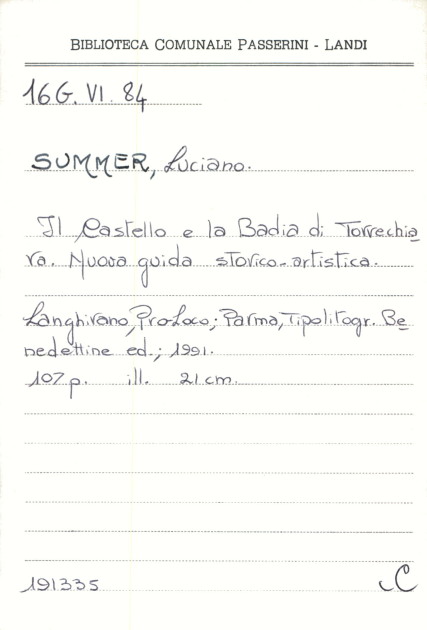 BIBLIOTECA COMUNALE PASSERINI - LANDI
16G. VI. 84
SUMMER, Luciano.
Il Castello e la Badia di Torrechia
ra. Nuova guida storico-artistica.
Langhirano, Pro-Loco; Parma, Tipolitogr. Be
nedettine ed.; 1991.
107 p. ill. 21 cm.
191335 C